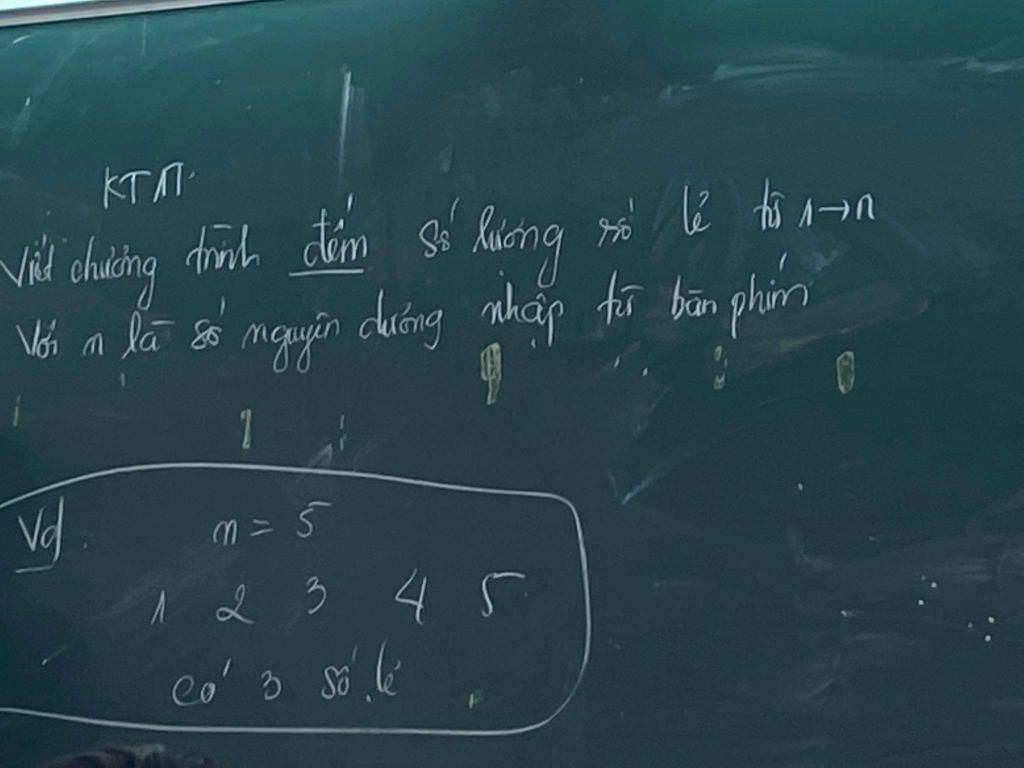 KTM
Viết chương trình đếm số lượng số lẻ từ 1→n
Với n là số nguyên dương nhập từ bàn phím
Vd:
n = 5
1 2 3 4 5
có 3 số lẻ